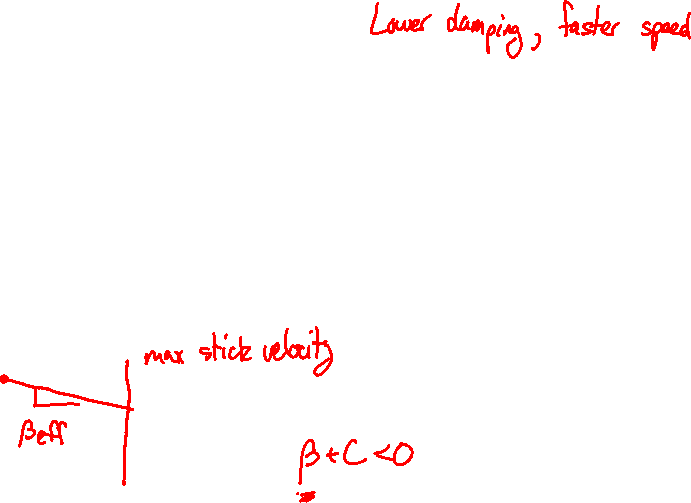 Lower damping, faster speed
max stick velocity
βeff
β + C < 0